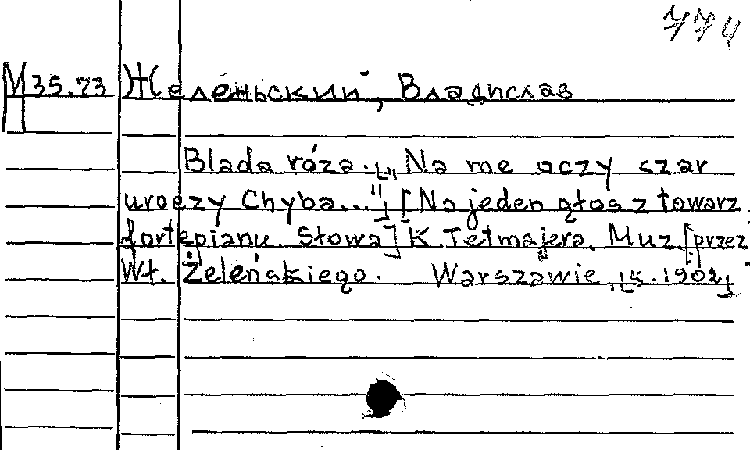 774
М 35.73 Желеньский, Владислав
Blada róża. „Na me oczy czar
uroczy Chyba..." [Na jeden głos z towarz.
fortepianu Słowa] K Tetmajera. Muz. [przez
Wł. Żeleńskiego. Warszawie, [s. 1902]